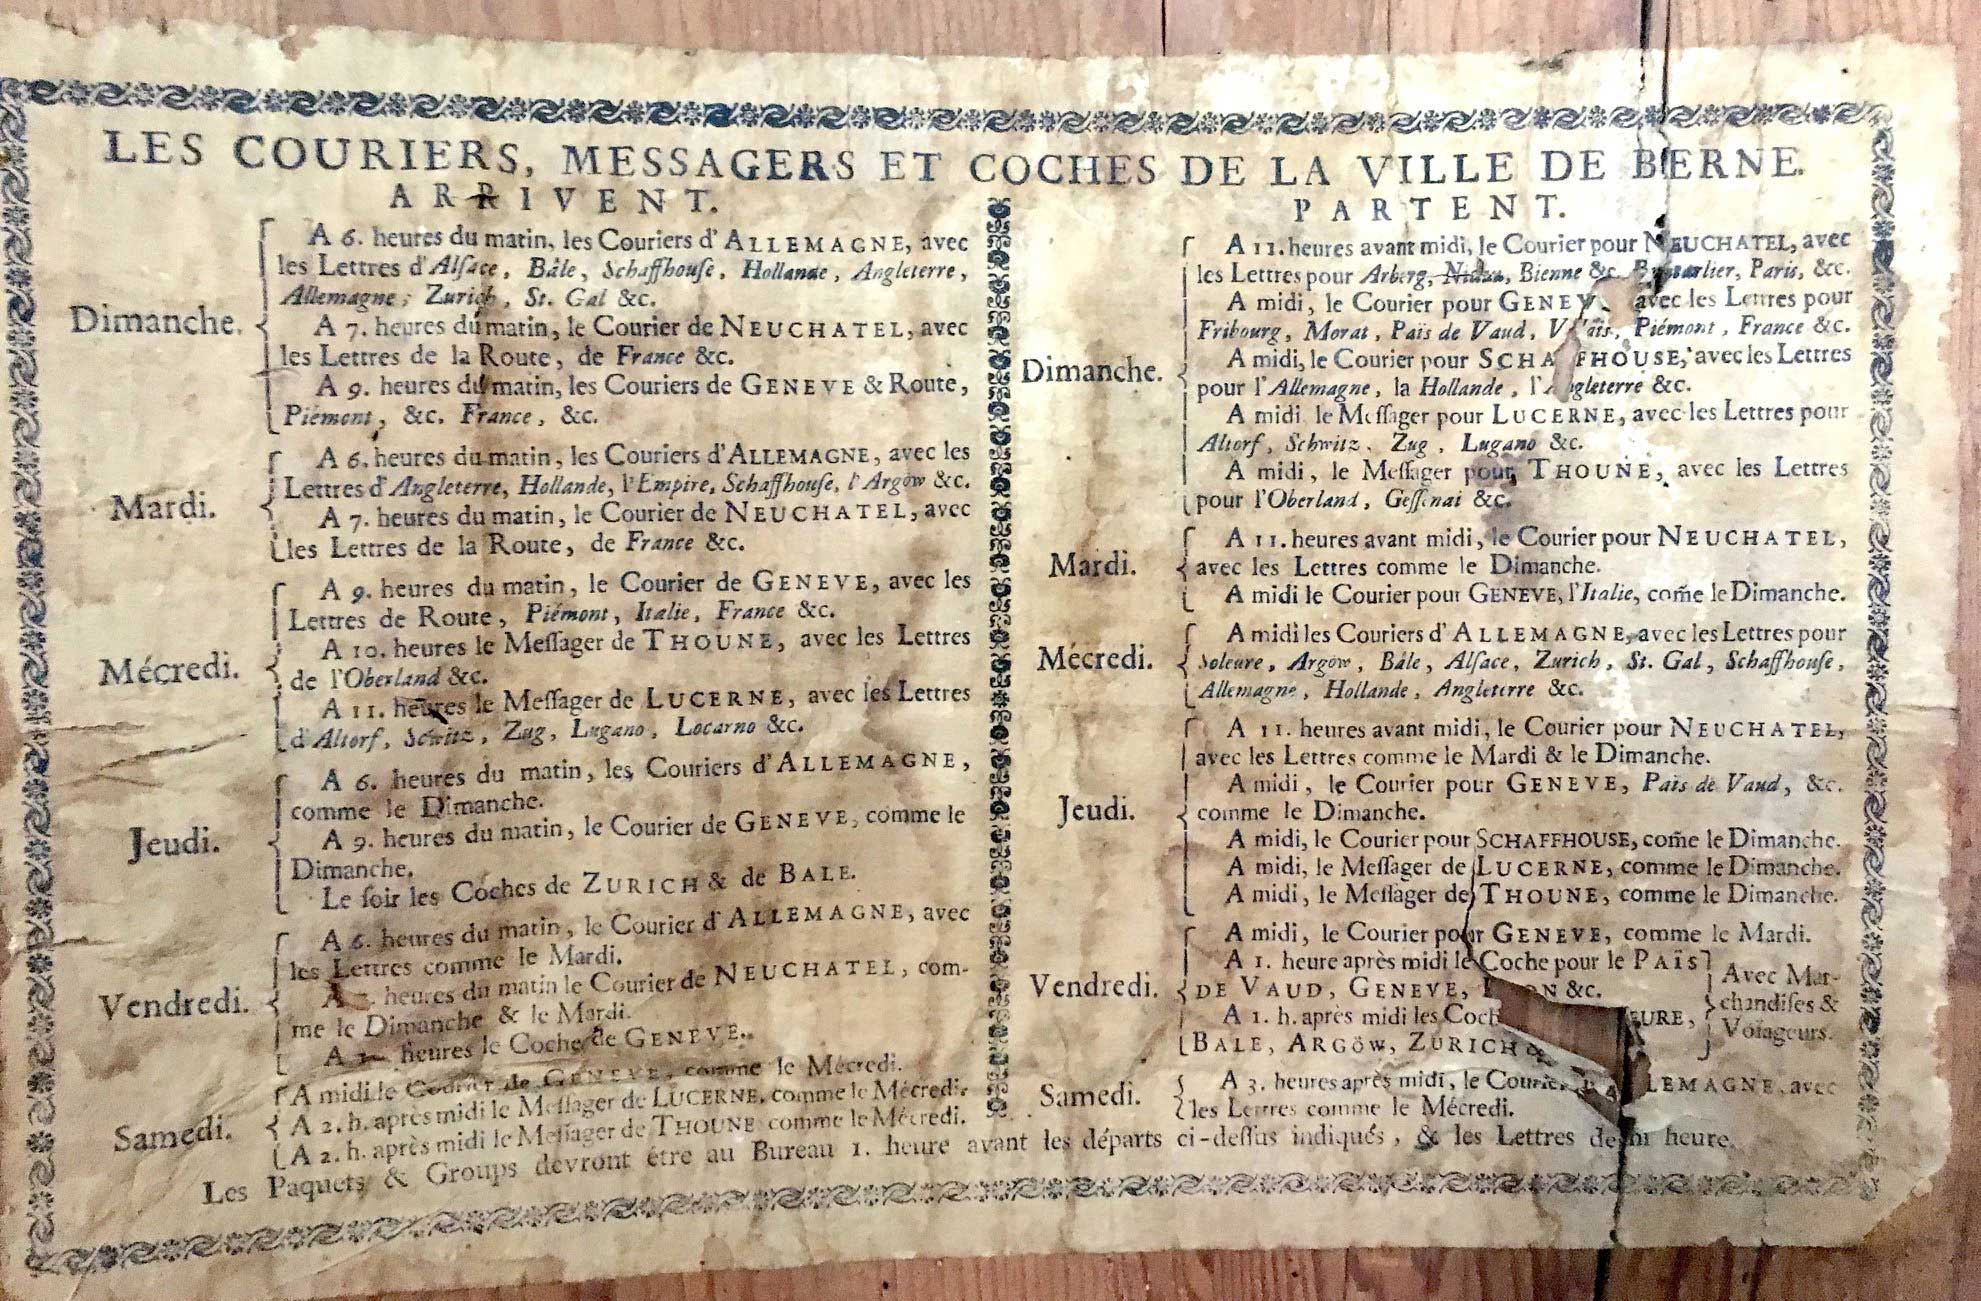 LES COURIERS, MESSAGERS ET COCHES DE LA VILLE DE BERNE.
ARRIVENT.
Dimanche.
A 6. heures du matin, les Couriers d'ALLEMAGNE, avec
les Lettres d'Alſace, Bâle, Schaffhouſe, Hollande, Angleterre,
Allemagne, Zurich, St. Gal &c.
A 7. heures du matin, le Courier de NEUCHATEL, avec
les Lettres de la Route, de France &c.
A 9. heures du matin, les Couriers de GENEVE & Route,
Piémont, &c. France, &c.
Mardi.
A 6. heures du matin, les Couriers d'ALLEMAGNE, avec les
Lettres d'Angleterre, Hollande, l'Empire, Schaffhouſe, l'Argow &c.
A 7. heures du matin, le Courier de NEUCHATEL, avec
les Lettres de la Route, de France &c.
Mécredi.
A 9. heures du matin, le Courier de GENEVE, avec les
Lettres de Route, Piémont, Italie, France &c.
A 10. heures le Meſſager de THOUNE, avec les Lettres
de l'Oberland &c.
A 11. heures le Meſſager de LUCERNE, avec les Lettres
d'Altorf, Zug, Lugano, Locarno &c.
Jeudi.
A 6. heures du matin, les Couriers d'ALLEMAGNE,
comme le Dimanche.
A 9. heures du matin, le Courier de GENEVE, comme le
Dimanche.
Le ſoir les Coches de ZURICH & de BALE.
Vendredi.
A 6. heures du matin, le Courier d'ALLEMAGNE, avec
les Lettres comme le Mardi.
A heures du matin le Courier de NEUCHATEL, com-
me le Dimanche & le Mardi.
A heures le Coche de GENEVE.
Samedi.
A midi le Courier de GENEVE, comme le Mécredi.
A 2. h. après midi le Meſſager de LUCERNE, comme le Mécredi.
A 2. h. après midi le Meſſager de THOUNE comme le Mécredi.
PARTENT.
Dimanche.
A 11. heures avant midi, le Courier pour NEUCHATEL, avec
les Lettres pour Arberg, Bienne &c. Paris, &c.
A midi, le Courier pour GENEV avec les Lettres pour
Fribourg, Morat, Païs de Vaud, Piémont, France &c.
A midi, le Courier pour SCHAFFHOUSE, avec les Lettres
pour l'Allemagne, la Hollande, l'Angleterre &c.
A midi le Meſſager pour LUCERNE, avec les Lettres pour
Altorf, Schwitz, Zug, Lugano &c.
A midi, le Meſſager pour THOUNE, avec les Lettres
pour l'Oberland, Geſſenai &c.
Mardi.
A 11. heures avant midi, le Courier pour NEUCHATEL,
avec les Lettres comme le Dimanche.
A midi le Courier pour GENEVE, l'Italie, com̃e le Dimanche.
Mécredi.
A midi les Couriers d'ALLEMAGNE, avec les Lettres pour
Soleure, Argow, Bâle, Alſace, Zurich, St. Gal, Schaffhouſe,
Allemagne, Hollande, Angleterre &c.
Jeudi.
A 11. heures avant midi, le Courier pour NEUCHATEL,
avec les Lettres comme le Mardi & le Dimanche.
A midi, le Courier pour GENEVE, Païs de Vaud, &c.
comme le Dimanche.
A midi, le Courier pour SCHAFFHOUSE, com̃e le Dimanche.
A midi, le Meſſager de LUCERNE, comme le Dimanche.
A midi, le Meſſager de THOUNE, comme le Dimanche.
Vendredi.
A midi, le Courier pour GENEVE, comme le Mardi.
A 1. heure après midi le Coche pour le PAÏS
DE VAUD, GENEVE, &c.
A 1. h. après midi les Coch EURE,
BALE, ARGÖW, ZURICH &
Avec Mar-
chandiſes &
Voïageurs.
Samedi.
A 3. heures après midi, le Courier ALLEMAGNE, avec
les Lettres comme le Mécredi.
Les Paquets & Groups devront être au Bureau 1. heure avant les départs ci-deſſus indiqués, & les Lettres demi heure.